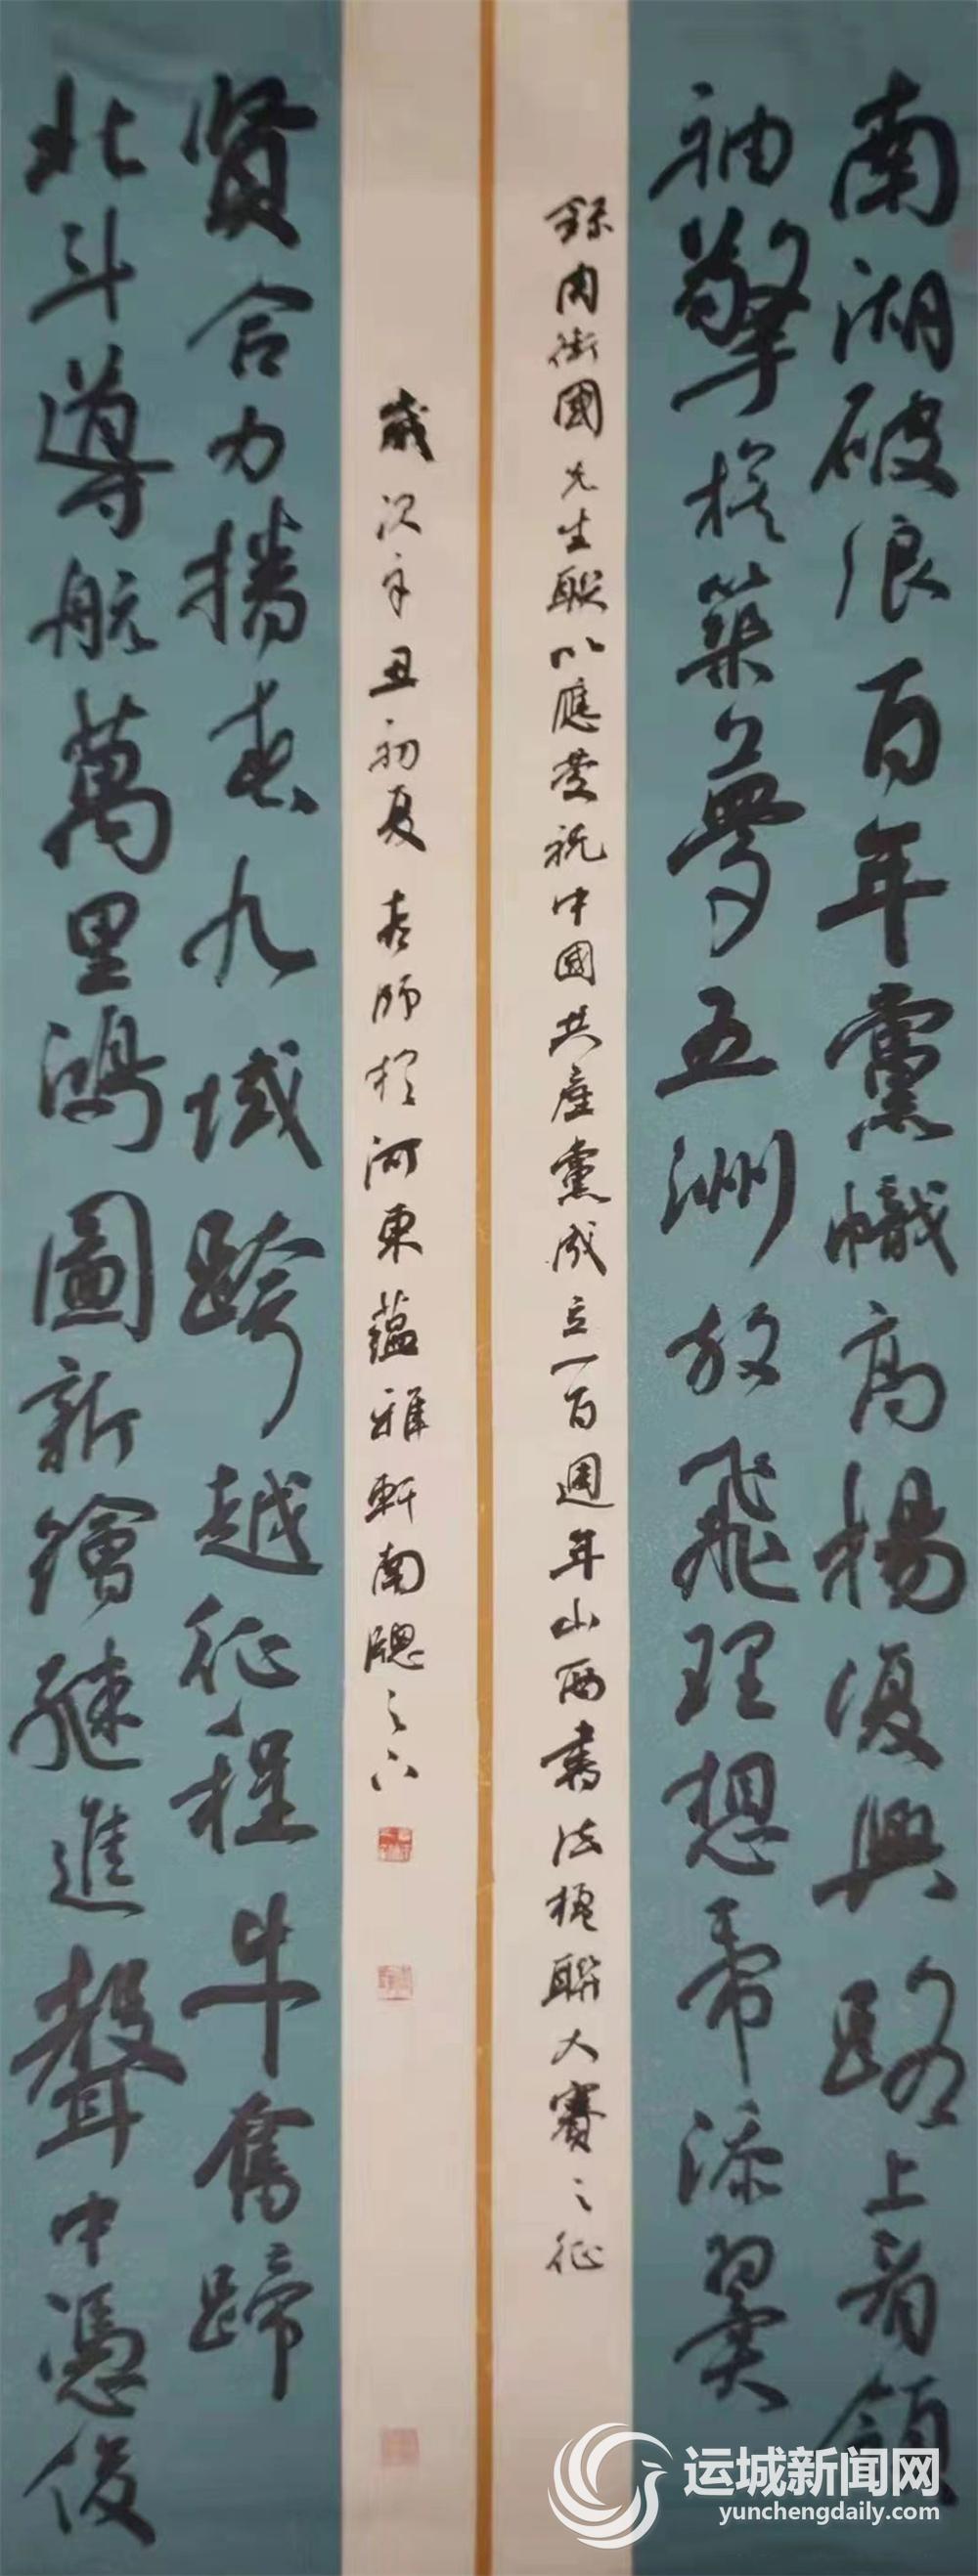 南湖破浪百年黨幟高揚復興路上看領
袖擎旗築夢五洲放飛理想虎添翼
錄衛國先生聯以應慶祝中國共產黨成立一百週年山西書法楹聯大賽之征
北斗導航萬里鴻圖新繪進聲中憑俊
賢合力播春九域跨越征程牛奮蹄
歲次辛丑初夏師於河東蘊雅軒南牕之下
运城新闻网
yunchengdaily.com